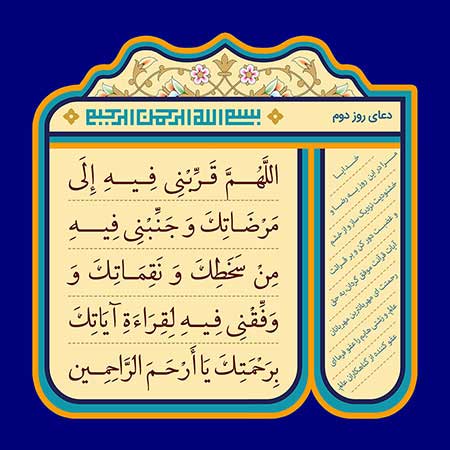 دعای روز دوم
بسم الله الرحمن الرحیم
اللَّهُمَّ قَرِّبْنِی فِیهِ إِلَى
مَرْضَاتِكَ وَ جَنِّبْنِی فِیهِ
مِنْ سَخَطِكَ وَ نَقِمَاتِكَ وَ
وَفِّقْنِی فِیهِ لِقِرَاءَةِ آیَاتِكَ
بِرَحْمَتِكَ یَا أَرْحَمَ الرَّاحِمِین
خدایا
مرا در این روز به رضا و
خشنودیت نزدیک ساز و از خشم
و غضبت دور کن و بر قرائت
آیات قرآنت موفق گردان به حق
رحمتت ای مهربانترین مهربانان
عالم و زشتی هایم را عفو فرما ای
عفو کننده از گناهکاران عالم